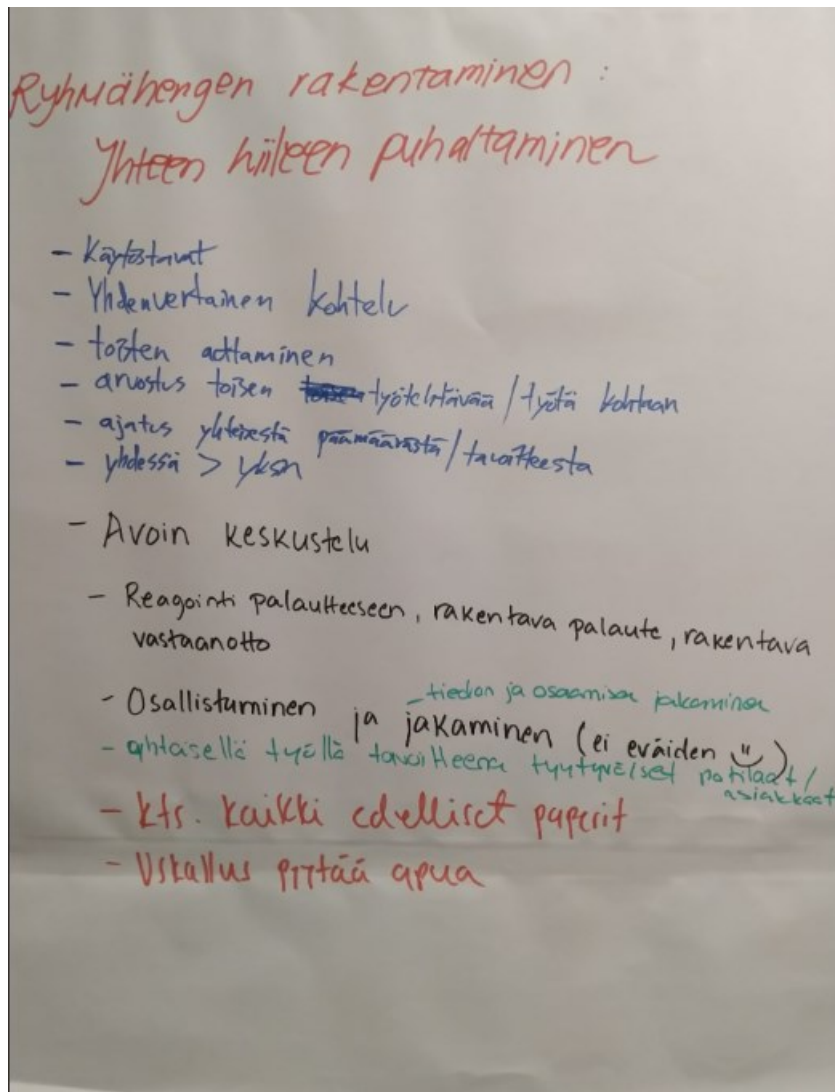 Ryhmähengen rakentaminen :
Yhteen hiileen puhaltaminen
- Käytöstavat
- Yhdenvertainen kohtelu
- toisten auttaminen
- arvostus toisen työtehtävää / työtä kohtaan
- ajatus yhteisestä päämäärästä / tavoitteesta
- yhdessä > yksin
- Avoin keskustelu
- Reagointi palautteeseen, rakentava palaute, rakentava
vastaanotto
- tiedon ja osaamisen jakaminen
- Osallistuminen ja jakaminen (ei eväiden )
- yhteisellä työllä tavoitteena tyytyväiset potilaat /
asiakkaat
- kts. kaikki edelliset paperit
- Uskallus pyytää apua